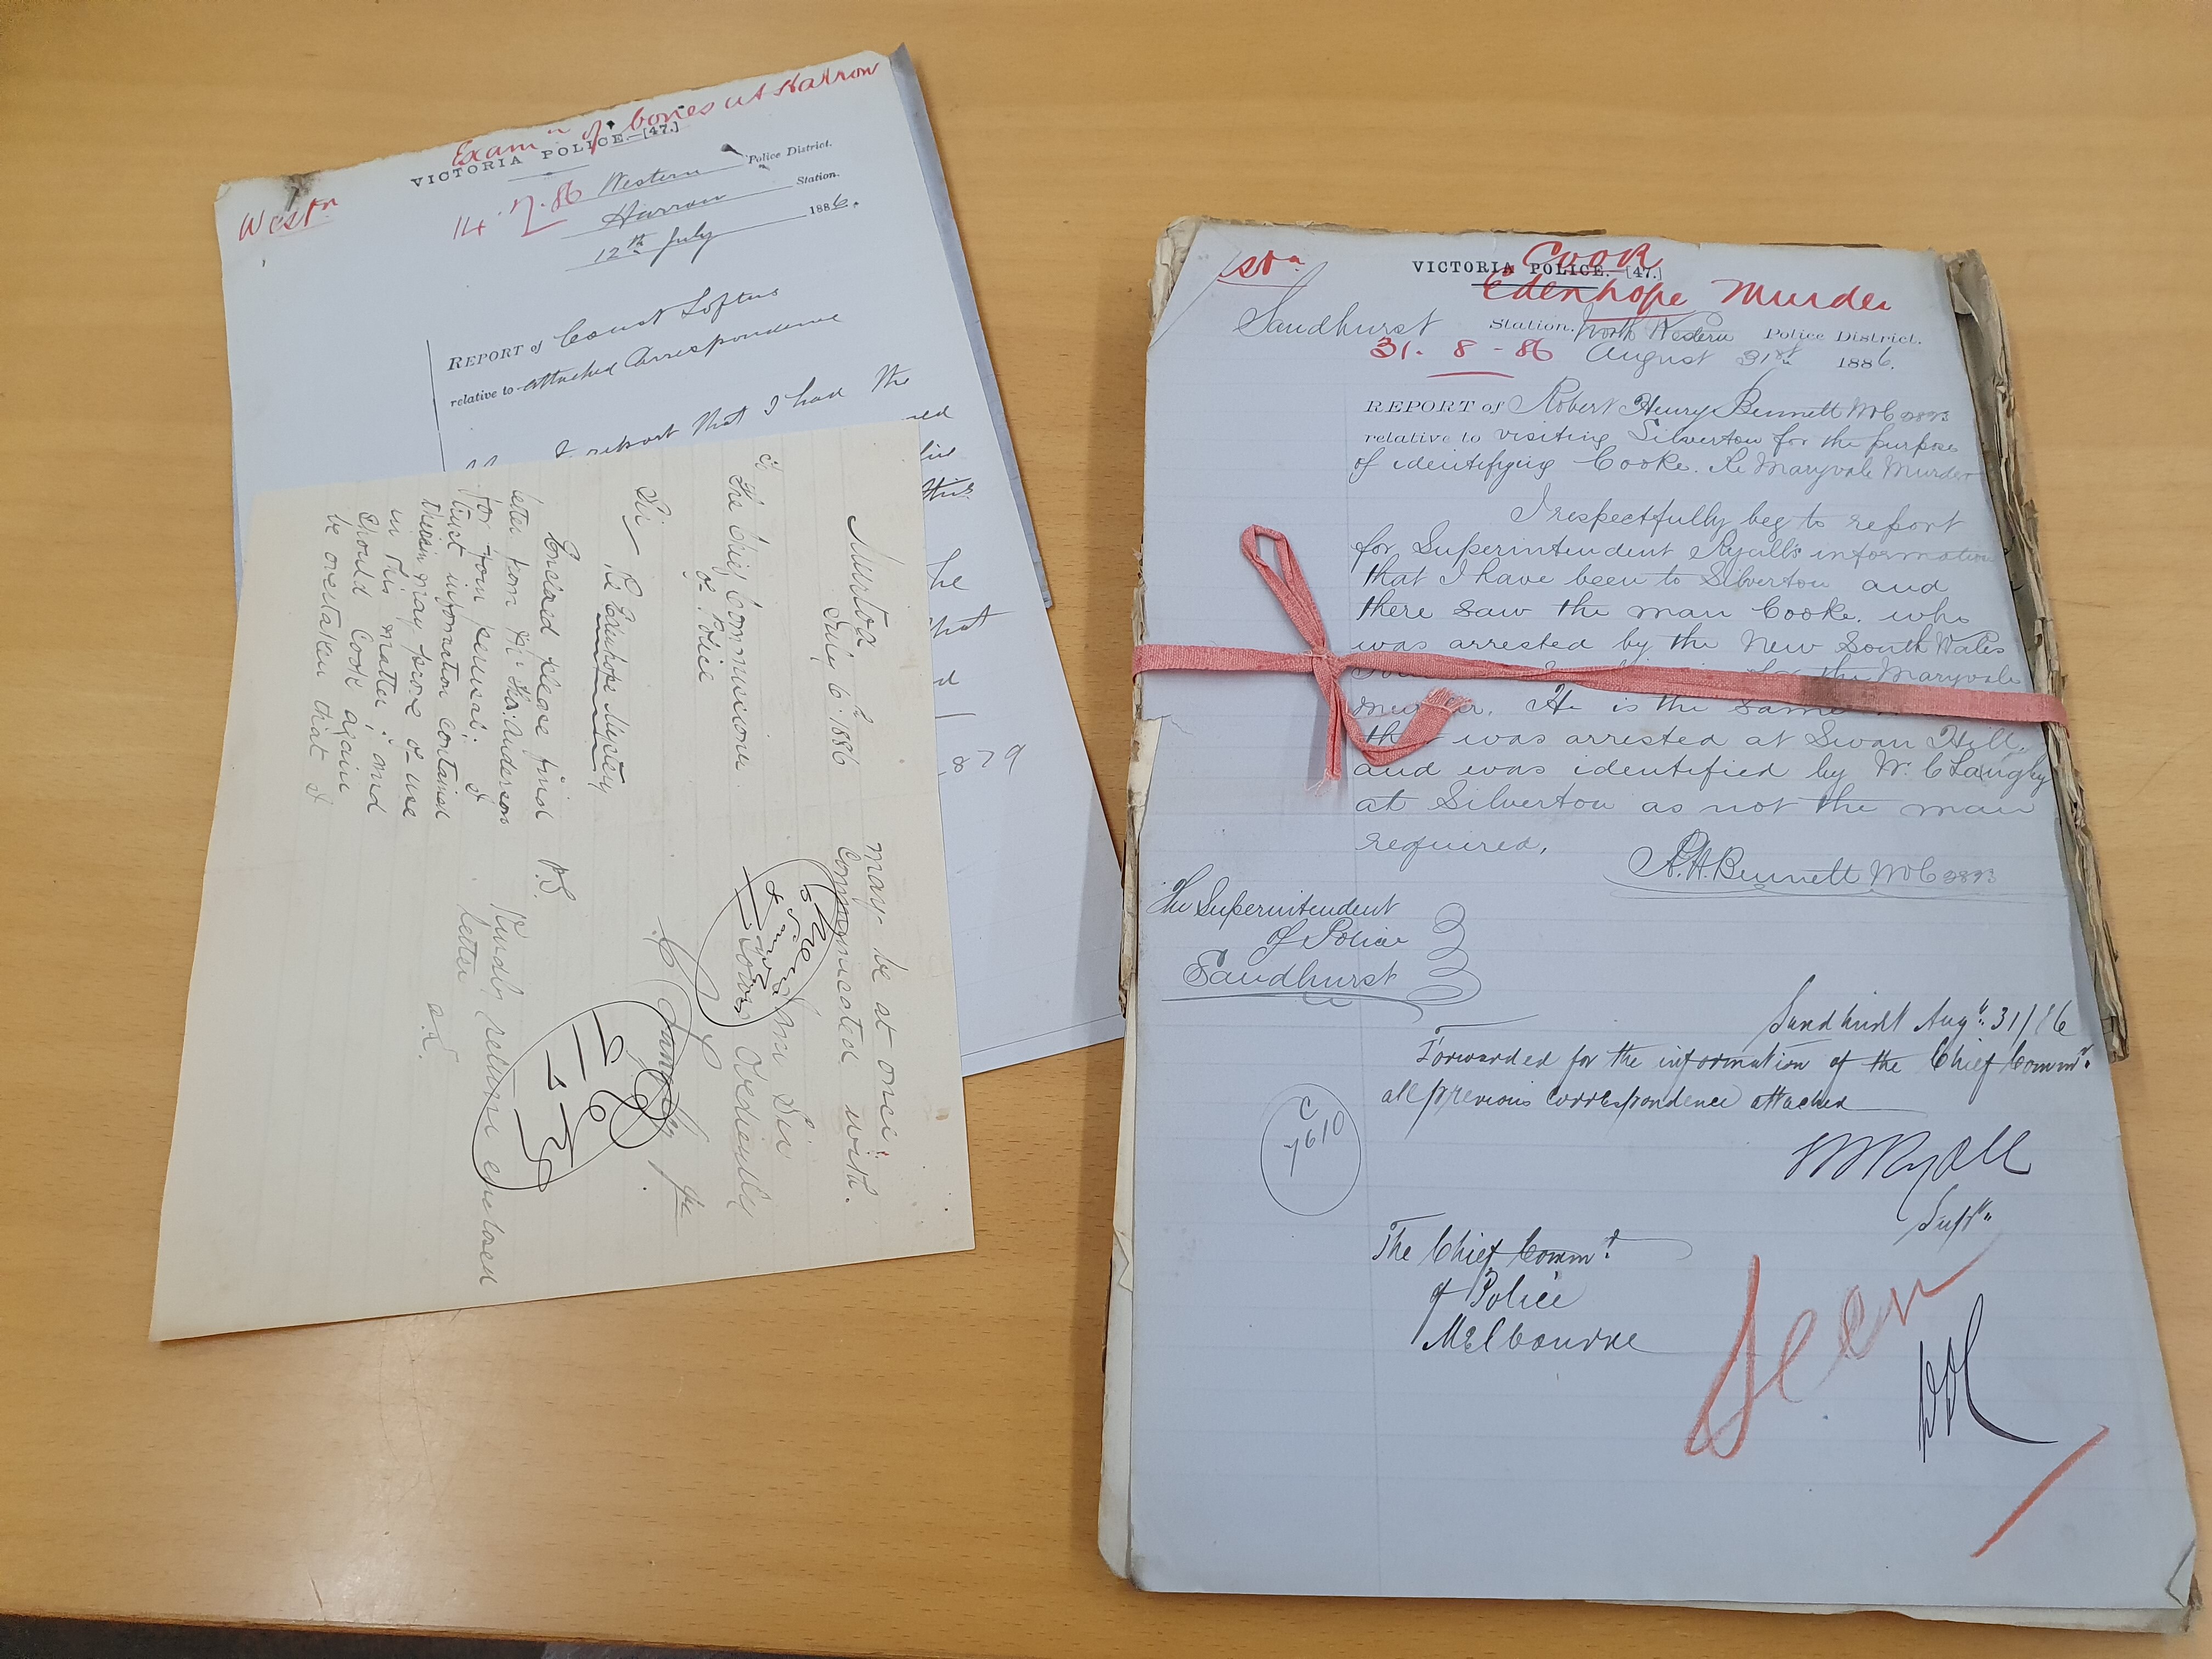 Exam n of bones at Harrow
VICTORIA POLICE.—[47.]
Westn
14.7.86 Western Police District.
Harrow Station.
12th July 1886.
REPORT of Const Loftus
relative to attached Correspondence
I report that I had the
this
the
that
879
Murtoa
July 6th 1886
The Chief Commissione
of Police
Sir Re Edenhope Mystery
Enclosed please find
letter from Mr Anderson
for your perusal; I
trust information contained
therein may prove of use
in this matter; and
should Cook again
be overtaken that I
may be at once
communicated with.
I am Sir
Yours Obediently
C Langley Jr
P.S. Kindly return enclosed
letter
Cook
VICTORIA POLICE.—[47.]
Edenhope Murder
Sandhurst Station. North Western Police District.
31-8-86 August 31st 1886.
REPORT of Robert Henry Bennett M.C 2893
relative to visiting Silverton for the purpose
of identifying Cooke. Re Maryvale Murder
I respectfully beg to report
for Superintendent Ryall's information
that I have been to Silverton and
there saw the man Cooke. who
was arrested by the New South Wales
for the Maryvale
He is the same
that was arrested at Swan Hill,
and was identified by W. C Langley
at Silverton as not the man
required.
R.H.Bennett M.C 2893
The Superintendent
of Police
Sandhurst
Sandhurst Augt 31/86
Forwarded for the information of the Chief Commr.
all previous correspondence attached
C
7610
Ryall
Supt
The Chief Commr
of Police
Melbourne
Seen